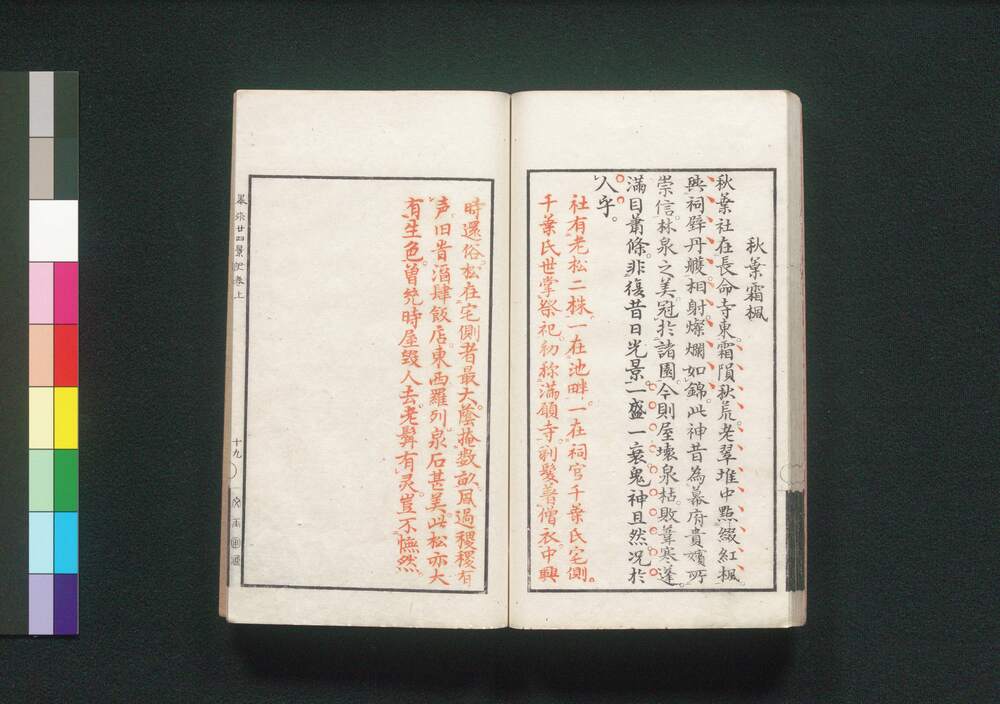 秋葉霜楓
秋葉社在長命寺東。霜隕秋荒。老翠堆中。點綴紅楓。
與祠壁丹艧。相射燦爛如錦。此神昔為幕府貴嬪所
崇信。林泉之美。冠於諸園。今則屋壞泉枯。敗葦寒蓬。
滿目蕭條。非復昔日光景。一盛一衰。鬼神且然。况於
人乎。
社有老松二株。一在池畔。一在祠官千葉氏宅側。
千葉氏世掌祭祀。初称滿願寺。剃髮着僧衣。中興
時還俗。松在宅側者最大。蔭掩數畝。風過稷稷有
声。旧昔酒肆飯店。東西羅列。泉石甚美。此松亦大
有生色。曽幾時屋毀人去。老髯有灵。豈不憮然。
墨水廿四景記卷上
十九